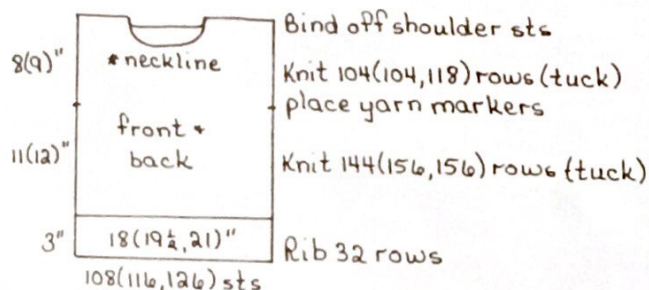 Bind off shoulder sts
8(9)"
*neckline
Knit 104(104,118) rows (tuck)
place yarn markers
front *
back
11(12)"
Knit 144(156,156) rows (tuck)
3"
18(19½,21)"
Rib 32 rows
108(116,126) sts